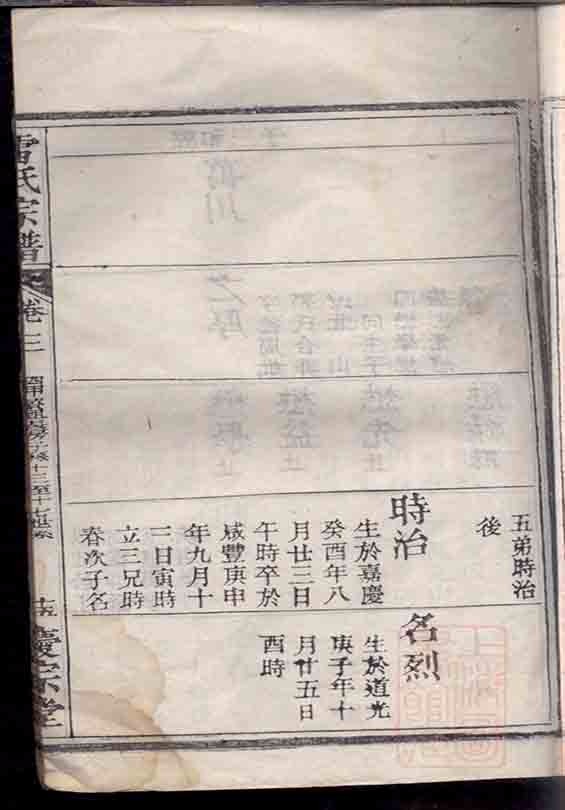 五弟時治
後
時治
生於嘉慶
癸酉年八
月廿三日
午時卒於
咸豐庚申
年九月十
二日寅時
立三兄時
春次子名
名烈
生於道光
庚子年十
月廿五日
酉時
雷氏宗譜
卷三
十三至十七世系
慶宗堂